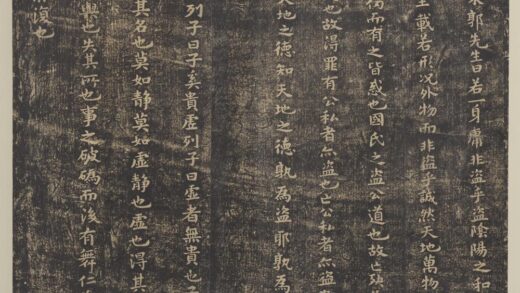 郭先生曰若一身庸非盜乎盜陰陽之和
載若形况外物而非盜乎誠然天地萬物
而有之皆惑也國氏之盜公道也故亡殃
也故得罪有公私者亦盜也亡公私者亦盜
天地之德知天地之德孰為盜耶孰為
列子曰子奚貴虛列子曰虛者無貴也子
其名也莫如靜莫如虛靜也虛也得其
與也失其所也事之破䃣而後有舞仁
復也